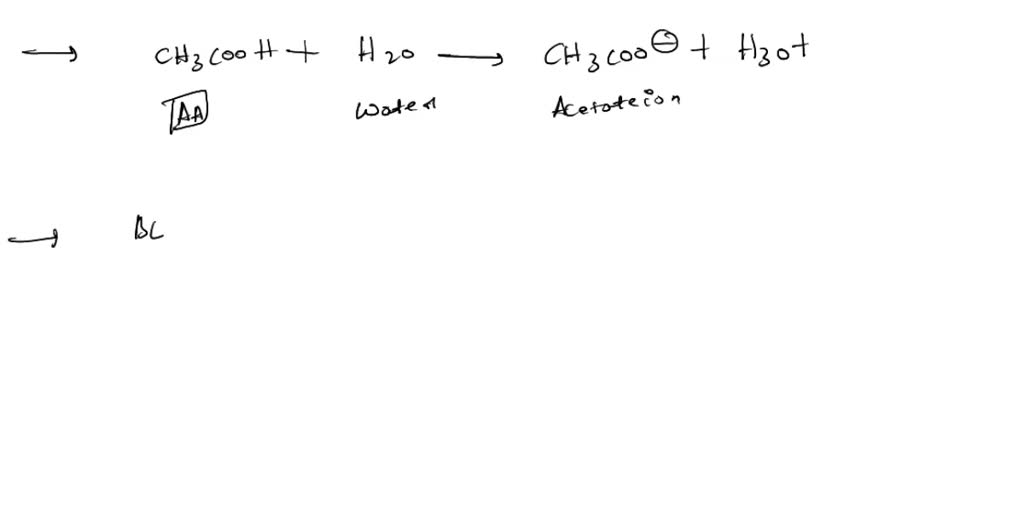 → CH3COOH + H2O → CH3COO⊖ + H3O+
AA Water Acetate ion
→ BC